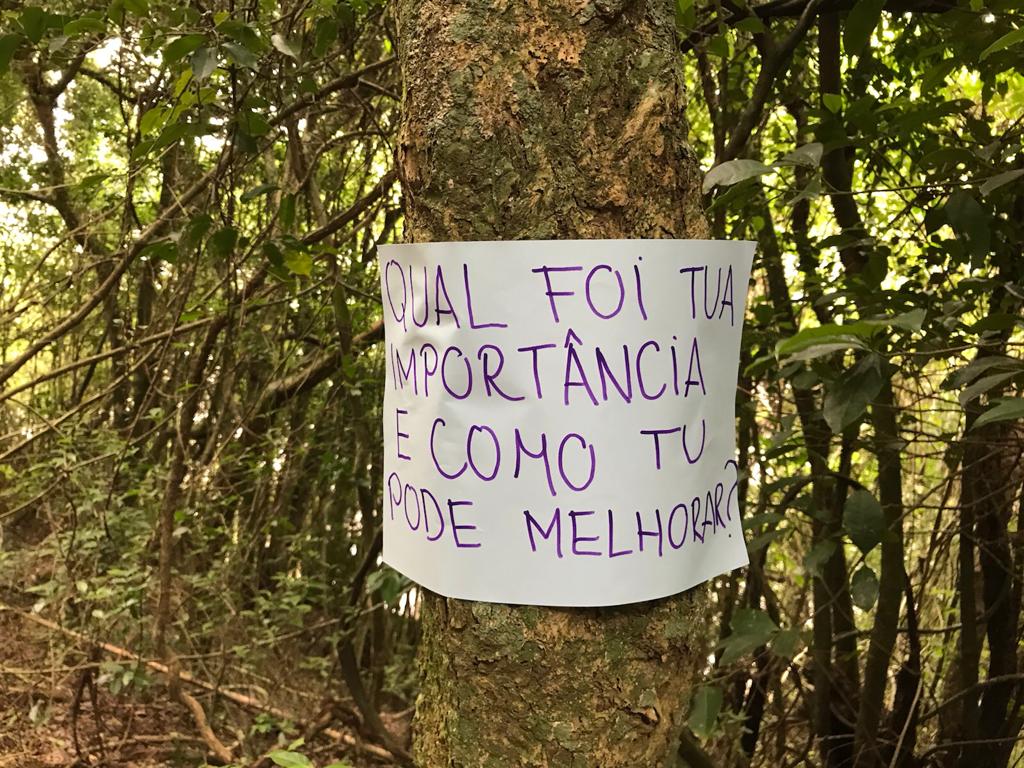 QUAL FOI TUA
IMPORTÂNCIA
E COMO TU
PODE MELHORAR?